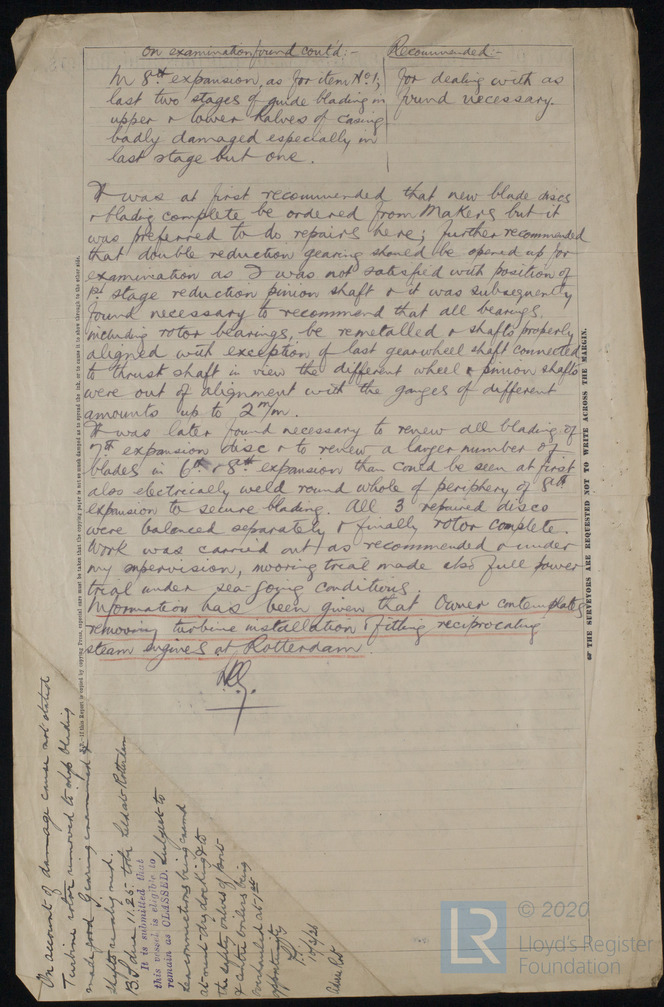 On examination found cont'd :-
Recommended :-
In 8th expansion, as for item No 1,
last two stages of guide blading in
upper & lower halves of casing
badly damaged especially in
last stage but one.
for dealing with as
found necessary.
It was at first recommended that new blade discs
& blading complete be ordered from Makers but it
was preferred to do repairs here; further recommended
that double reduction gearing should be opened up for
examination as I was not satisfied with position of
1st stage reduction pinion shaft & it was subsequently
found necessary to recommend that all bearings,
including rotor bearings, be remetalled & shafts properly
aligned with exception of last gearwheel shaft connected
to thrust shaft in view the different wheel & pinion shafts
were out of alignment with the gauges of different
amounts up to 2 m/m.
It was later found necessary to renew all blading of
7th expansion disc & to renew a larger number of
blades in 6th & 8th expansion than could be seen at first
also electrically weld round whole of periphery of 8th
expansion to secure blading. All 3 repaired discs
were balanced separately & finally rotor complete.
Work was carried out as recommended & under
my supervision, mooring trial made also full power
trial under sea-going conditions.
Information has been given that Owner contemplates
removing turbine installation & fitting reciprocating
steam engines at Rotterdam.
THE SURVEYORS ARE REQUESTED NOT TO WRITE ACROSS THE MARGIN.
On account of damage cause not stated
Turbine rotor removed to shop blading
made good Gearing examined &
shafts realigned.
It is submitted that
this vessel is eligible to
remain as CLASSED. Subject to
sea connections being examd
at next dry docking & to
the safety valves of port
& centre boilers being
overhauled at 1st
opportunity
© 2020
LR
Lloyd's Register
Foundation